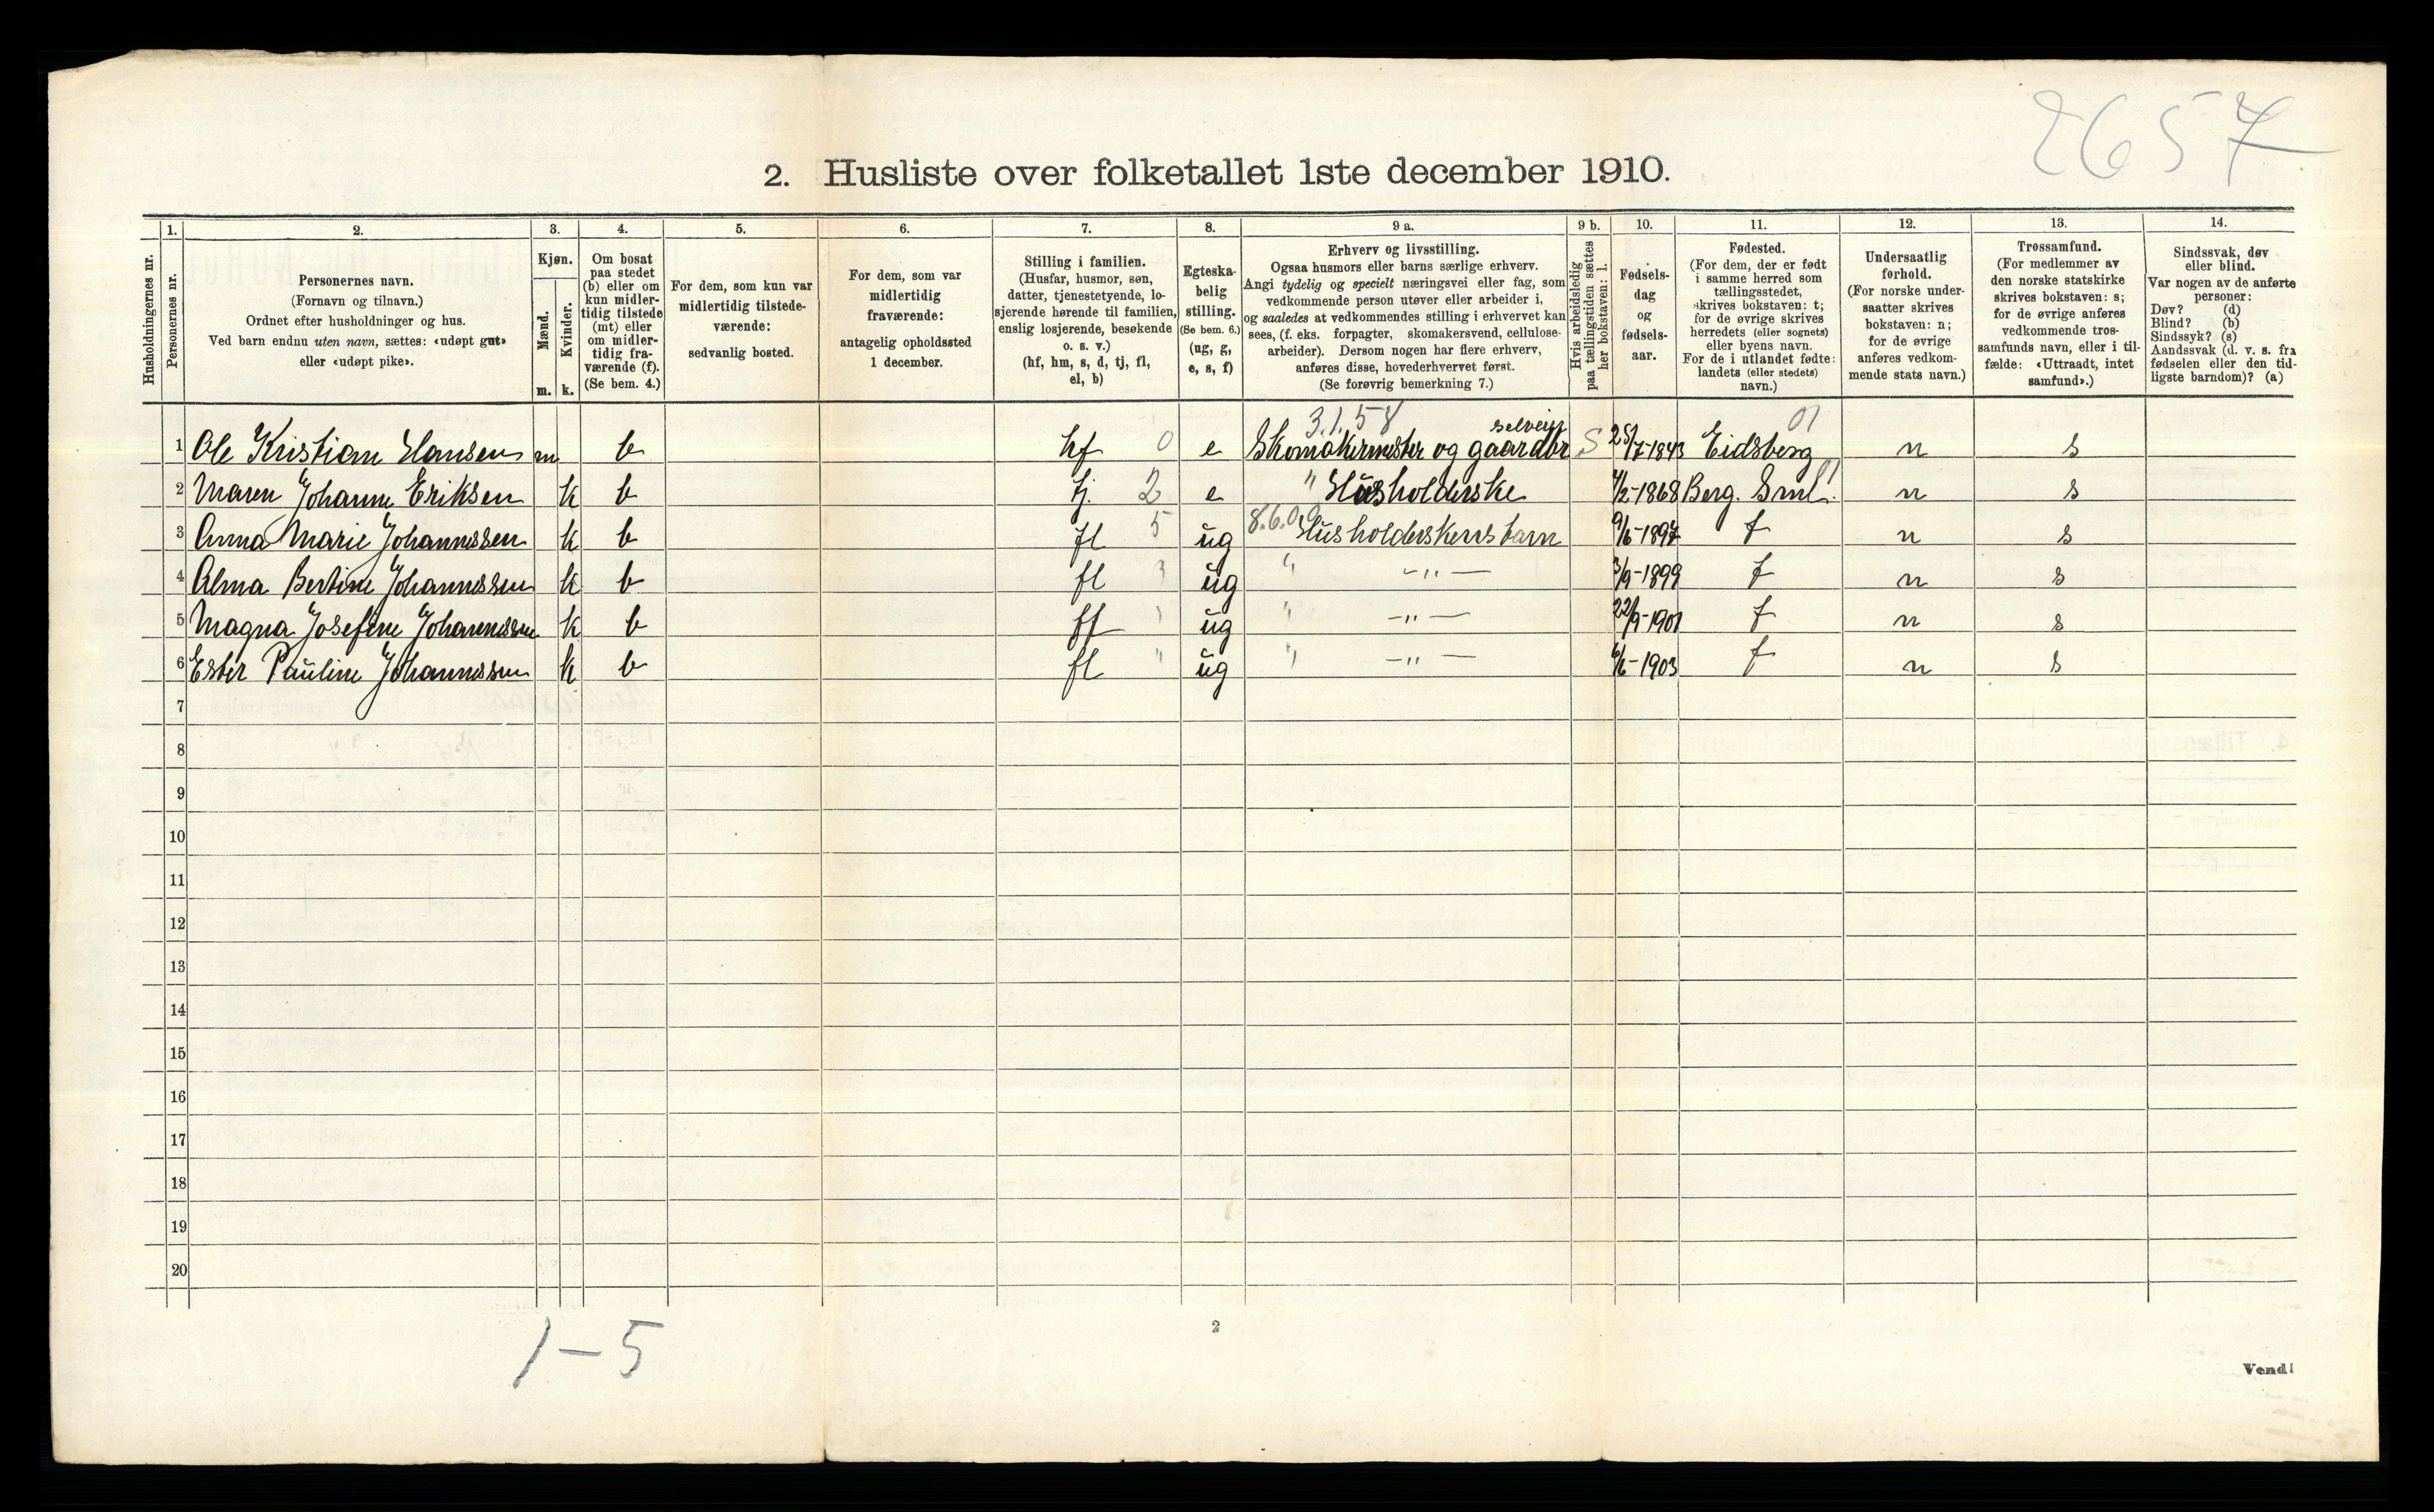 2657
2. Husliste over folketallet 1ste december 1910.
Husholdningernes nr.
1.
Personernes nr.
2.
Personernes navn.
(Fornavn og tilnavn.)
Ordnet efter husholdninger og hus.
Ved barn endnu uten navn, sættes: «udøpt gut»
eller «udøpt pike».
3.
Kjøn.
Mænd.
m.
Kvinder.
k.
4.
Om bosat
paa stedet
(b) eller om
kun midler-
tidig tilstede
(mt) eller
om midler-
tidig fra-
værende (f).
(Se bem. 4.)
5.
For dem, som kun var
midlertidig tilstede-
værende:
sedvanlig bosted.
6.
For dem, som var
midlertidig
fraværende:
antagelig opholdssted
1 december.
7.
Stilling i familien.
(Husfar, husmor, søn,
datter, tjenestetyende, lo-
sjerende hørende til familien,
enslig losjerende, besøkende
o. s. v.)
(hf, hm, s, d, tj, fl,
el, b)
8.
Egteska-
belig
stilling.
(Se bem. 6.)
(ug, g,
e, s, f)
9 a.
Erhverv og livsstilling.
Ogsaa husmors eller barns særlige erhverv.
Angi tydelig og specielt næringsvei eller fag, som
vedkommende person utøver eller arbeider i,
og saaledes at vedkommendes stilling i erhvervet kan
sees, (f. eks. forpagter, skomakersvend, cellulose-
arbeider). Dersom nogen har flere erhverv,
anføres disse, hovederhvervet først.
(Se forøvrig bemerkning 7.)
9 b.
Hvis arbeidsledig
paa tællingstiden sættes
her bokstaven: l.
10.
Fødsels-
dag
og
fødsels-
aar.
11.
Fødested.
(For dem, der er født
i samme herred som
tællingsstedet,
skrives bokstaven: t;
for de øvrige skrives
herredets (eller sognets)
eller byens navn.
For de i utlandet fødte:
landets (eller stedets)
navn.)
12.
Undersaatlig
forhold.
(For norske under-
saatter skrives
bokstaven: n;
for de øvrige
anføres vedkom-
mende stats navn.)
13.
Trossamfund.
(For medlemmer av
den norske statskirke
skrives bokstaven: s;
for de øvrige anføres
vedkommende tros-
samfunds navn, eller i til-
fælde: «Uttraadt, intet
samfund».)
14.
Sindssvak, døv
eller blind.
Var nogen av de anførte
personer:
Døv? (d)
Blind? (b)
Sindssyk? (s)
Aandssvak (d. v. s. fra
fødselen eller den tid-
ligste barndom)? (a)
3.1.58 selveier 01
1 Ole Kristian Hansen m b hf 0 e Skomakermester og gaardbr S 28/7-1843 Eidsberg n s
2 Maren Johanne Eriksen k b tj. 2 e " Husholderske 4/2-1868 Berg. Sml. 01 n s
3 Anna Marie Johannssen k b fl 5 ug 8.6.00 Husholderskens barn 9/6-1897 t n s
4 Alma Bertine Johannssen k b fl 3 ug " -"- 3/9-1899 t n s
5 Magna Josefine Johannssen k b fl 1 ug " -"- 22/9-1901 t n s
6 Ester Pauline Johannssen k b fl " ug " -"- 6/6-1903 t n s
7
8
9
10
11
12
13
14
15
16
17
18
19
20
1-5
2
Vend!